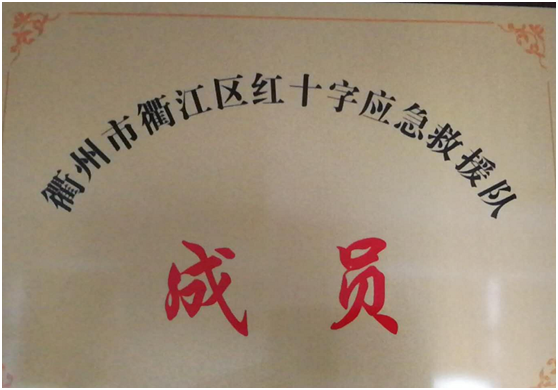 衢州市衢江区红十字应急救援队
成员